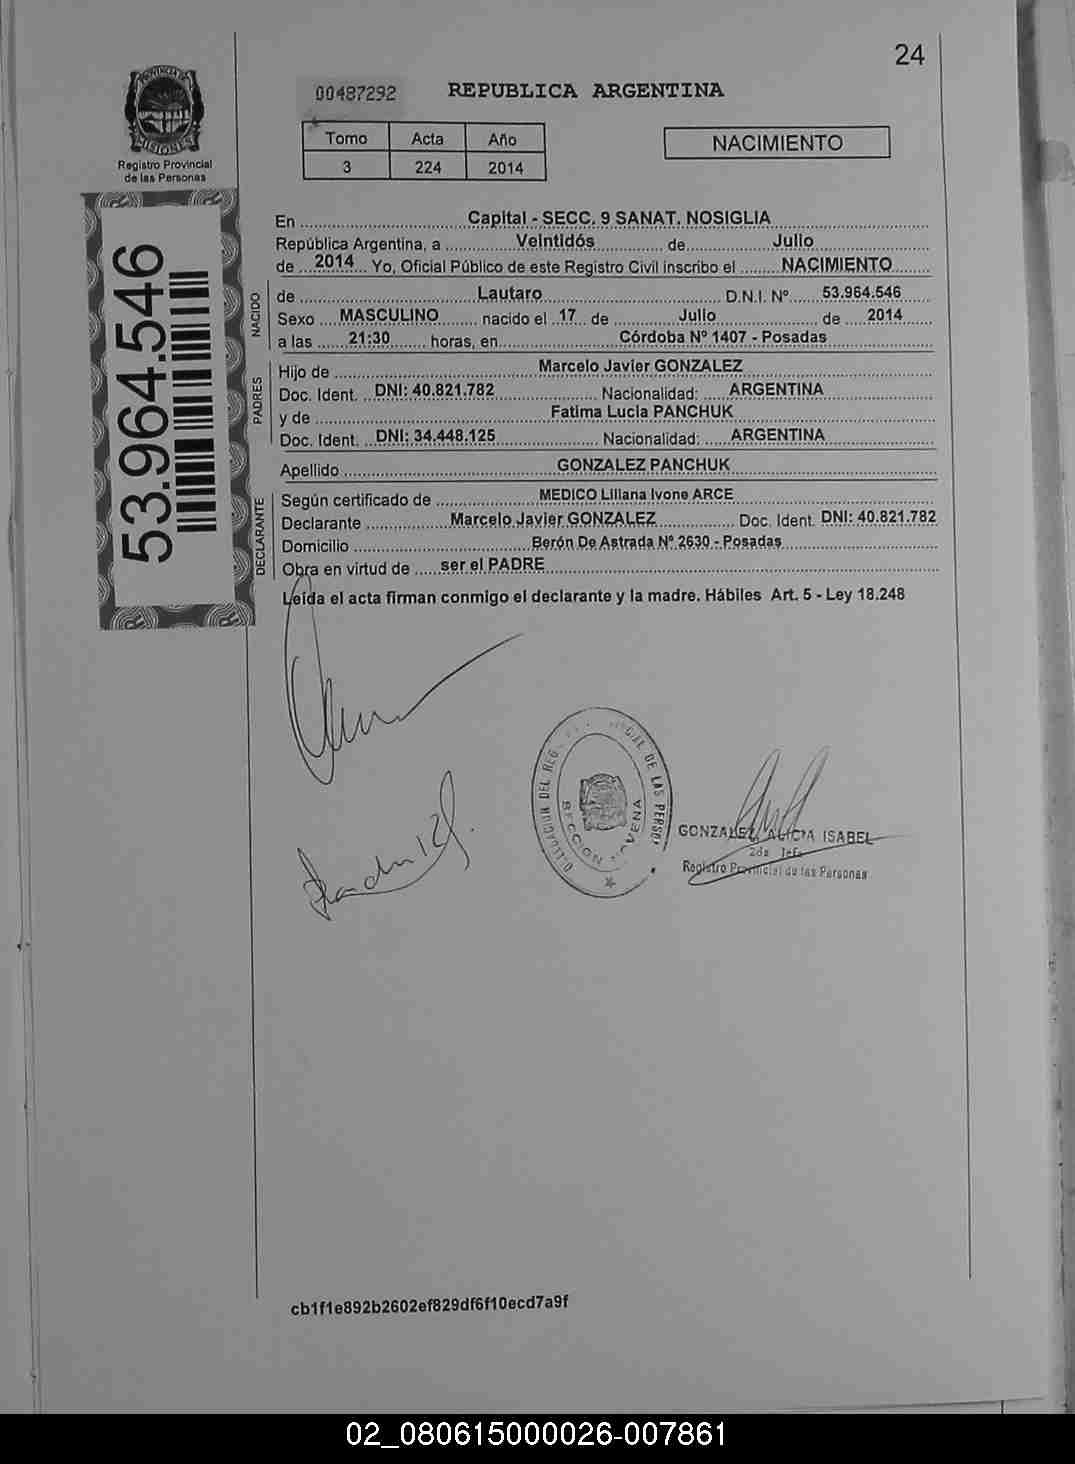 24
PROVINCIA DE
MISIONES
Registro Provincial
de las Personas
00487292
REPUBLICA ARGENTINA
Tomo Acta Año
3 224 2014
NACIMIENTO
53.964.546
En Capital - SECC. 9 SANAT. NOSIGLIA
República Argentina, a Veintidós de Julio
de 2014 Yo, Oficial Público de este Registro Civil inscribo el NACIMIENTO
NACIDO
de Lautaro D.N.I. Nº 53.964.546
Sexo MASCULINO nacido el 17 de Julio de 2014
a las 21:30 horas, en Córdoba Nº 1407 - Posadas
PADRES
Hijo de Marcelo Javier GONZALEZ
Doc. Ident. DNI: 40.821.782 Nacionalidad: ARGENTINA
y de Fatima Lucia PANCHUK
Doc. Ident. DNI: 34.448.125 Nacionalidad: ARGENTINA
Apellido GONZALEZ PANCHUK
DECLARANTE
Según certificado de MEDICO Liliana Ivone ARCE
Declarante Marcelo Javier GONZALEZ Doc. Ident. DNI: 40.821.782
Domicilio Berón De Astrada Nº 2630 - Posadas
Obra en virtud de ser el PADRE
Leída el acta firman conmigo el declarante y la madre. Hábiles Art. 5 - Ley 18.248
DELEGACION DEL DE LAS
SECCION NOVENA
GONZALEZ, ALICIA ISABEL
2da Jefa
Registro Provincial de las Personas
cb1f1e892b2602ef829df6f10ecd7a9f
02_080615000026-007861